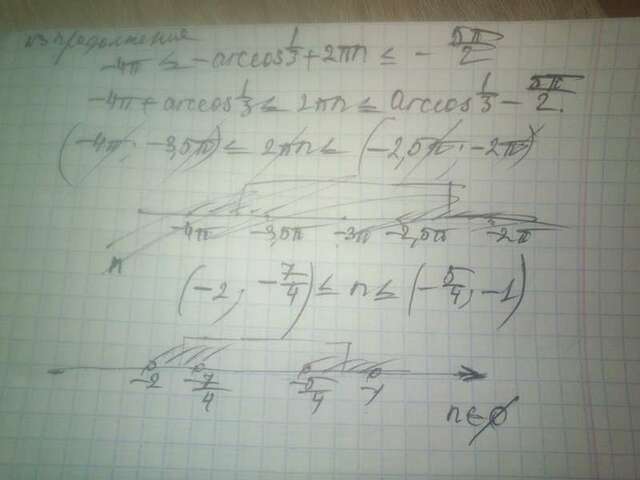 из продолжения
-4π ≤ -arccos 1/3 + 2πn ≤ - 5π/2
-4π + arccos 1/3 ≤ 2πn ≤ arccos 1/3 - 5π/2.
(-4π; -3,5π) ≤ 2πn ≤ (-2,5π; -2π)
-4π -3,5π -3π -2,5π -2π
n
(-2; -7/4) ≤ n ≤ (-5/4; -1)
-2 -7/4 -5/4 -1
n∈∅